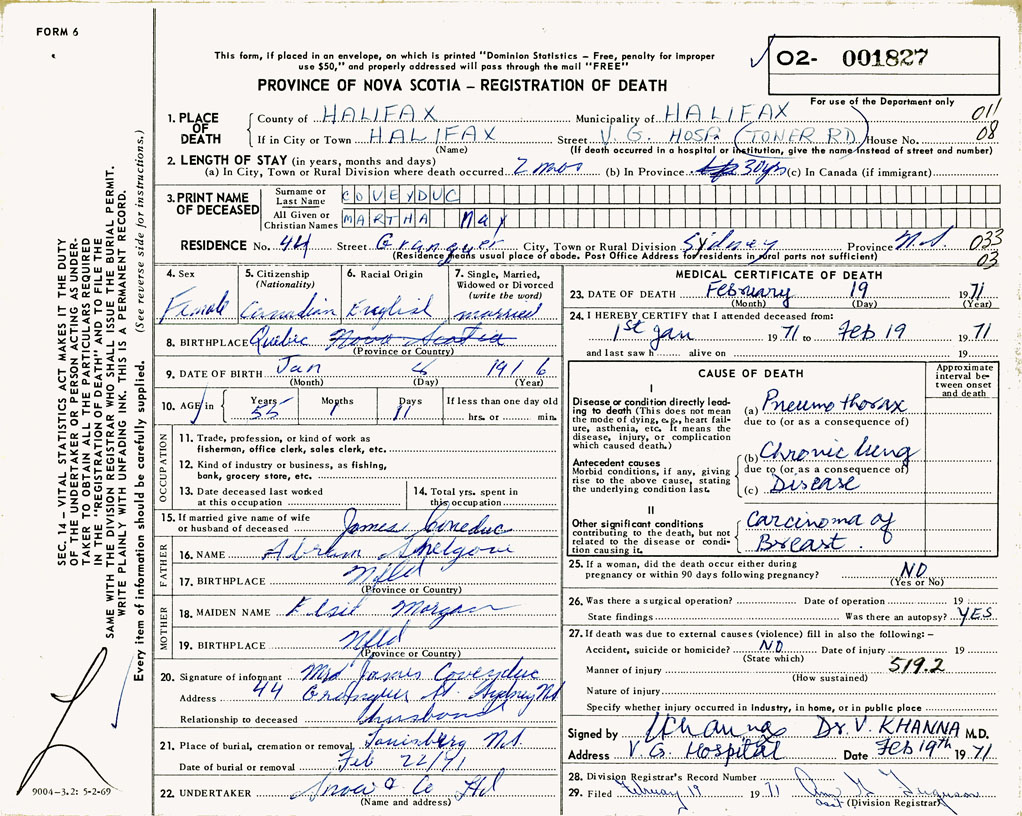 FORM 6
This form, if placed in an envelope, on which is printed "Dominion Statistics – Free, penalty for improper
use $50," and properly addressed will pass through the mail "FREE"
PROVINCE OF NOVA SCOTIA – REGISTRATION OF DEATH
02- 001827
For use of the Department only
011
08
1. PLACE OF DEATH
County of HALIFAX Municipality of HALIFAX
If in City or Town HALIFAX Street V. G. HOSP. (TONER RD) House No.
(Name) (If death occurred in a hospital or institution, give the name instead of street and number)
2. LENGTH OF STAY (in years, months and days)
(a) In City, Town or Rural Division where death occurred 2 mos (b) In Province 30 yrs (c) In Canada (if immigrant)
3. PRINT NAME OF DECEASED
Surname or Last Name COVEYDUC
All Given or Christian Names MARTHA May
RESIDENCE No. 44 Street City, Town or Rural Division Sydney Province N.S. 033
(Residence means usual place of abode. Post Office Address for residents in rural parts not sufficient) 03
4. Sex
Female
5. Citizenship
(Nationality)
Canadian
6. Racial Origin
English
7. Single, Married,
Widowed or Divorced
(write the word)
married
8. BIRTHPLACE Quebec Nova Scotia
(Province or Country)
9. DATE OF BIRTH Jan 8 1916
(Month) (Day) (Year)
10. AGE in Years Months Days If less than one day old
55 1 11 hrs. or min.
OCCUPATION
11. Trade, profession, or kind of work as
fisherman, office clerk, sales clerk, etc.
12. Kind of industry or business, as fishing,
bank, grocery store, etc.
13. Date deceased last worked
at this occupation
14. Total yrs. spent in
this occupation
15. If married give name of wife
or husband of deceased James
FATHER
16. NAME Abram
17. BIRTHPLACE Nfld
(Province or Country)
MOTHER
18. MAIDEN NAME Elsie Morgan
19. BIRTHPLACE Nfld
(Province or Country)
20. Signature of informant Mrs James Coveyduc
Address 44 St. Sydney NS
Relationship to deceased husband
21. Place of burial, cremation or removal Louisberg N.S.
Date of burial or removal Feb 22/71
22. UNDERTAKER Snow & Co Ltd
(Name and address)
MEDICAL CERTIFICATE OF DEATH
23. DATE OF DEATH February 19 1971
(Month) (Day) (Year)
24. I HEREBY CERTIFY that I attended deceased from:
1st Jan 1971 to Feb 19 1971
and last saw h alive on 19
CAUSE OF DEATH
Approximate interval between onset and death
I
Disease or condition directly leading to death (This does not mean the mode of dying, e.g., heart failure, asthenia, etc. It means the disease, injury, or complication which caused death.)
(a) Pneumothorax
due to (or as a consequence of)
Antecedent causes
Morbid conditions, if any, giving rise to the above cause, stating the underlying condition last.
(b) Chronic lung
due to (or as a consequence of)
(c) Disease
II
Other significant conditions
contributing to the death, but not related to the disease or condition causing it.
Carcinoma of
Breast.
25. If a woman, did the death occur either during
pregnancy or within 90 days following pregnancy? NO
(Yes or No)
26. Was there a surgical operation? Date of operation 19
State findings Was there an autopsy? YES
27. If death was due to external causes (violence) fill in also the following:–
Accident, suicide or homicide? NO Date of injury 19
(State which)
Manner of injury 519.2
(How sustained)
Nature of injury
Specify whether injury occurred in industry, in home, or in public place
Signed by VKhanna Dr. V. KHANNA M.D.
Address V.G. Hospital Date Feb 19th 1971
28. Division Registrar's Record Number
29. Filed February 19 1971 Ferguson
(Division Registrar)
SEC. 14 – VITAL STATISTICS ACT MAKES IT THE DUTY
OF THE UNDERTAKER OR PERSON ACTING AS UNDER-
TAKER TO OBTAIN ALL THE PARTICULARS REQUIRED
IN THE "REGISTRATION OF DEATH" AND TO FILE THE
SAME WITH THE DIVISION REGISTRAR WHO SHALL ISSUE THE BURIAL PERMIT.
WRITE PLAINLY WITH UNFADING INK. THIS IS A PERMANENT RECORD.
Every item of information should be carefully supplied. (See reverse side for instructions.)
9004–3.2: 5-2-69